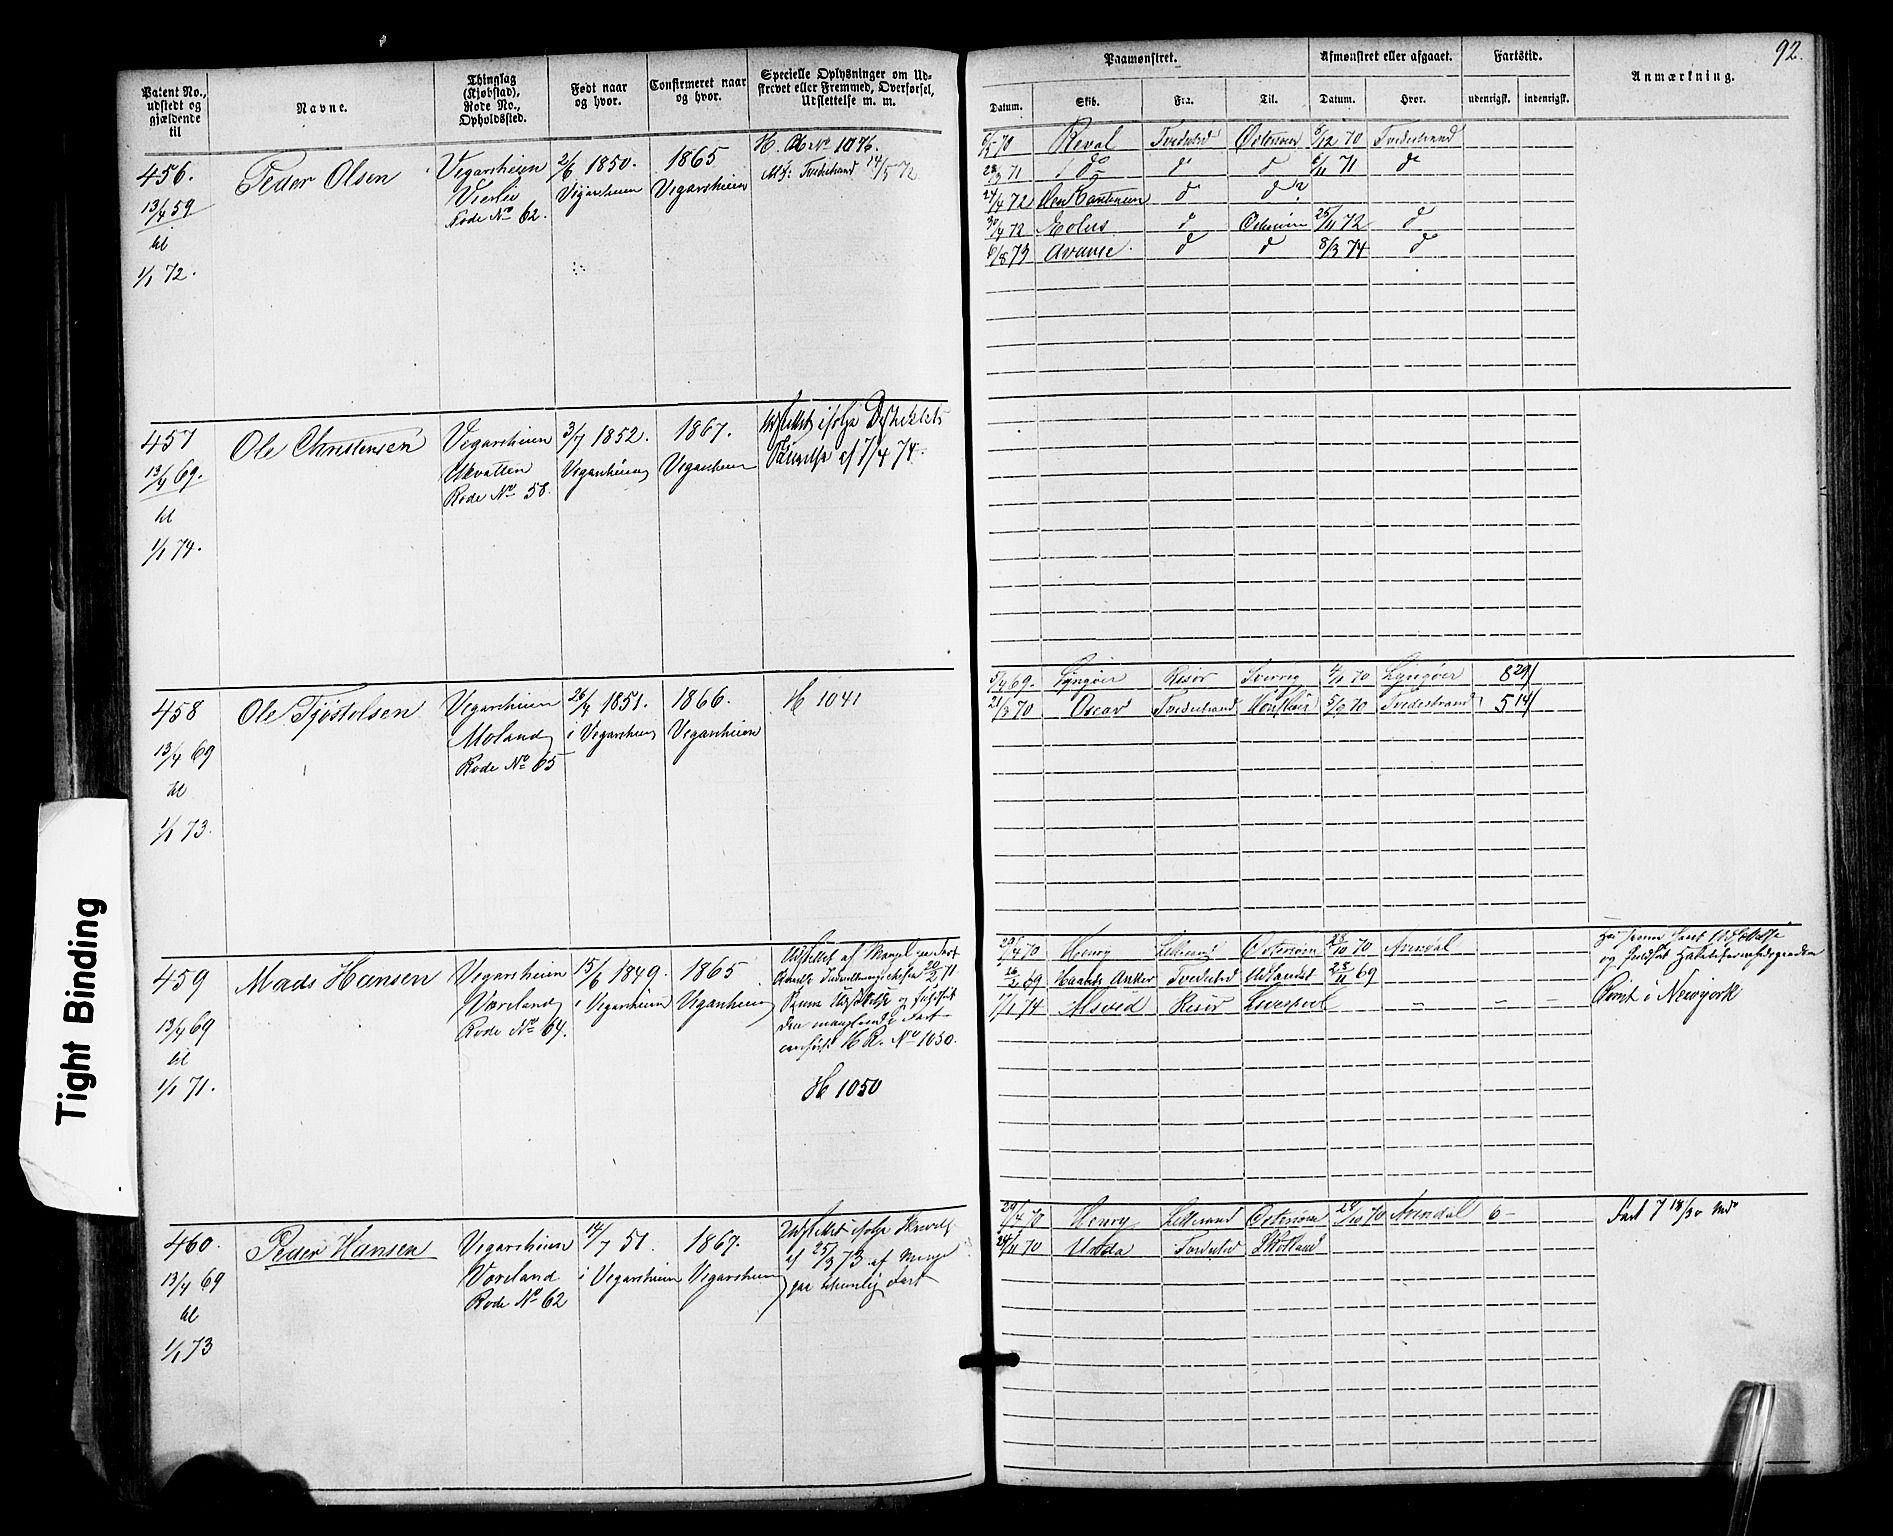 92.
Patent No., udstedt og gjældende til
Navne.
Thinglag (Kjøbstad), Rode No., Opholdssted.
Født naar og hvor.
Confirmeret naar og hvor.
Specielle Oplysninger om Udskrevet eller Fremmed, Overførsel, Udslettelse m. m.
Paamønstret.
Afmønstret eller afgaaet.
Fartstid.
Anmærkning.
Datum.
Skib.
Fra.
Til.
Datum.
Hvor.
udenrigsk.
indenrigsk.
456.
13/4 59
til
1/1 72.
Peder Olsen
Vegarsheien
Vierlie
Rode No 62.
2/6 1850.
Vegarsheien
1865
Vegarsheien
H. R No 1076.
Md: Tvedestrand 14/5 72
70 Reval Tvedestrd Østersøen 5/12 70 Tvedestrand
28/3 71 do d d 6/11 71 d
24/4 72 d d
30/4 72 Æolus d Østersøen 25/11 72 d
6/8 73 Avance. d d 8/3 74 d
457
13/4 69.
til
1/1 74.
Ole Christensen
Vegarsheien
Ukvatten
Rode No 58.
3/7 1852.
Vegarsheien
1867.
Vegarsheien
Udslettet ifølge
af 17/4 74.
458
13/4 69
til
1/1 73.
Ole Tjøstolsen
Vegarsheien
Moland
Rode No 65
26/4 1851.
i Vegarsheien
1866.
Vegarsheien
H 1041
5/4 69. Lyngøer Risør Sverrig 4/1 70 Lyngøer 829
21/3 70 Oscar Tvedestrand 5/9 70 Tvedestrand 514
459
13/4 69
til
1/1 71.
Mads Hansen
Vegarsheien
Voreland
Rode No 64.
15/6 1849.
i Vegarsheien
1865
Vegarsheien
Udslettet af Mangel paa Fart
20/2 71
Udslettelse og
den manglende Fart
H R. No 1050.
H 1050
29/4 70 Henry Østersøen 28/10 70 Arendal
16/2 69 Haabets Anker Tvedestrd Udlandet 23/11 69
7/1 74 Alsved Risør Liverpool – – –
Rømt i Newyork
460.
13/4 69
til
1/1 73
Peder Hansen
Vegarsheien
Voreland
Rode No 62
14/7 51.
i Vegarsheien
1867.
Vegarsheien
Udslettet ifølge Skrivelse
af 25/3 73 af Mangel
paa Fart
29/4 70 Henry Østersøen 28/10 70 Arendal 6 –
24/11 70 Unda Tvedestrd Skotland
Fart 7 18/30 Md
Tight Binding